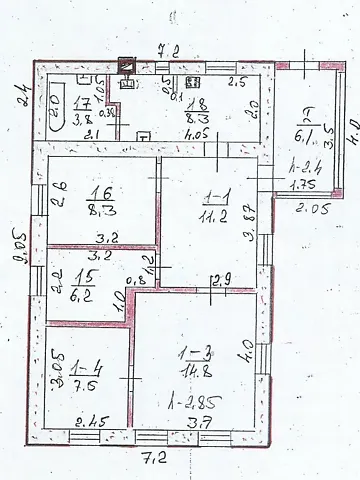 7.2
2.4
2.0
17
3.8
1.05
0.38
2.1
0.5
0.1
18
8.3
4.05
2.5
2.0
π
6.1
3.5
4.0
h-2.4
1.75
2.05
2.6
16
8.3
3.2
1-1
11.2
3.87
9.05
3.2
2.2
15
6.2
0.8
1.2
1.0
2.9
3.05
1-4
7.5
2.45
1-3
14.8
4.0
h-2.85
3.7
7.2